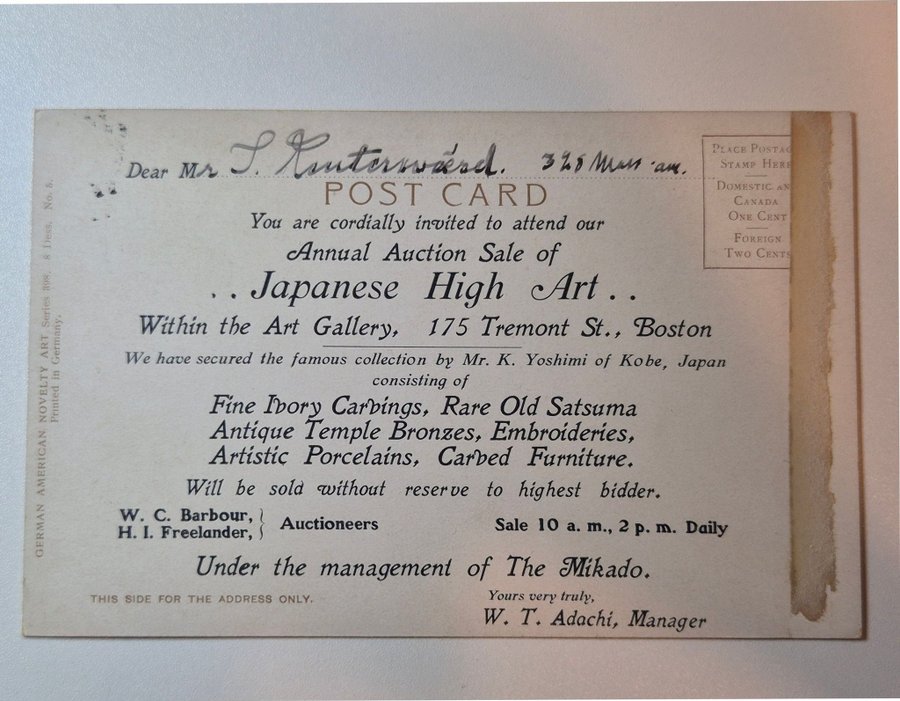 Dear Mr T. 328 Mass. av.
PLACE POSTAG
STAMP HERE
DOMESTIC AN
CANADA
ONE CENT
FOREIGN
TWO CENTS
POST CARD
You are cordially invited to attend our
Annual Auction Sale of
. . Japanese High Art . .
Within the Art Gallery, 175 Tremont St., Boston
We have secured the famous collection by Mr. K. Yoshimi of Kobe, Japan
consisting of
Fine Ivory Carvings, Rare Old Satsuma
Antique Temple Bronzes, Embroideries,
Artistic Porcelains, Carved Furniture.
Will be sold without reserve to highest bidder.
W. C. Barbour,
H. I. Freelander, } Auctioneers Sale 10 a. m., 2 p. m. Daily
Under the management of The Mikado.
THIS SIDE FOR THE ADDRESS ONLY.
Yours very truly,
W. T. Adachi, Manager
GERMAN AMERICAN NOVELTY ART Series 898. 8 Dess. No. 8.
Printed in Germany.